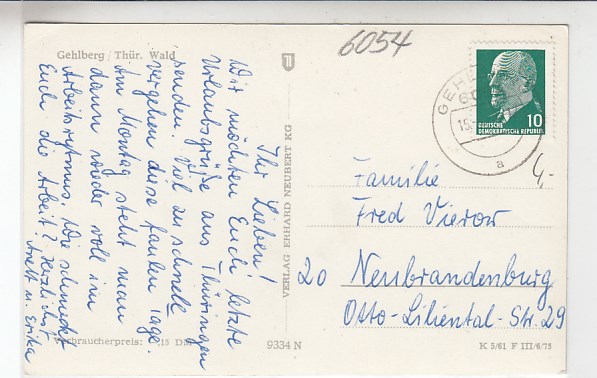 Gehlberg / Thür. Wald
Ihr Lieben!
Wir möchten Euch letzte
Urlaubsgrüße aus Thüringen
senden. Viel zu schnelle
vergehen diese faulen Tage.
Am Montag steht man
dann wieder voll im
Arbeitsrytmus. Wie schmeckt
Euch die Arbeit? Herzlichst
Anett u. Erika
Verbraucherpreis: -,15 DM
VERLAG ERHARD NEUBERT KG
9334 N
6054
GEHL
60
15.
a
10
DEUTSCHE
DEMOKRATISCHE REPUBLIK
4,-
Familie
Fred Vierow
20 Neubrandenburg
Otto-Liliental-Str. 29
K 5/61 F III/6/75